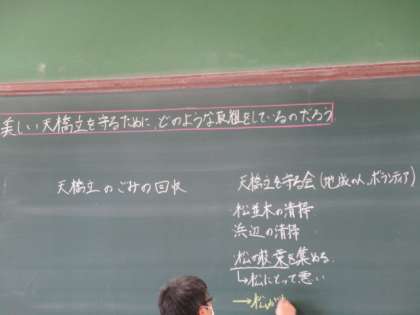 美しい天橋立を守るために、どのような取組をしているのだろう
天橋立のごみの回収
天橋立を守る会(地域の人、ボランティア)
松並木の清掃
浜辺の清掃
松の枝葉を集める
↳松にとって悪い
→松が